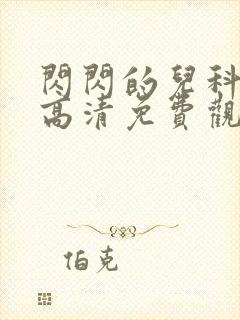 閃閃的兒科
高清免費觀
伯克